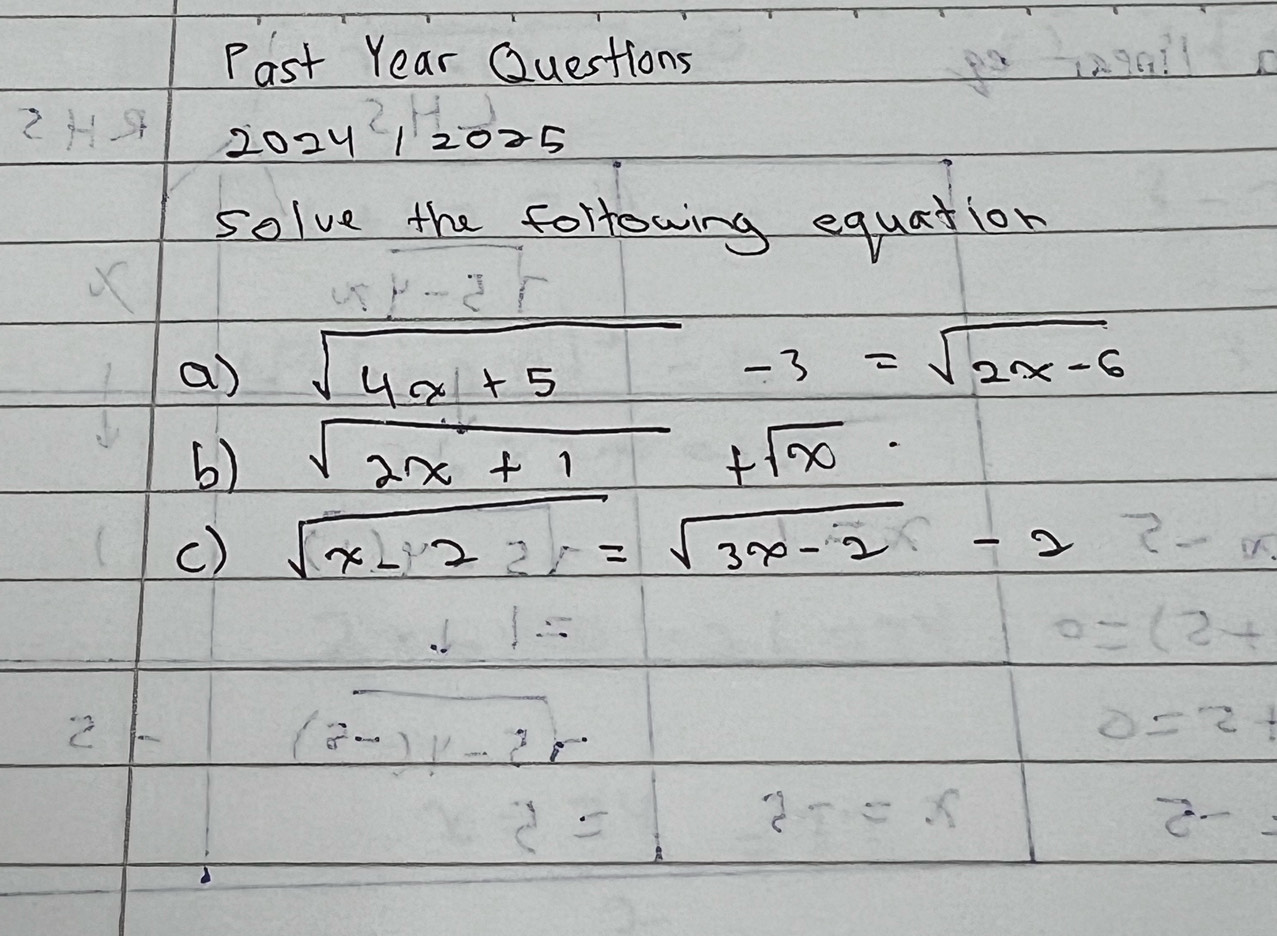 Past Year Questions
2024 / 2025
Solve the following equation
a) √4x + 5 - 3 = √2x - 6
b) √2x + 1 + √x
c) √x - 2 = √3x - 2 - 2